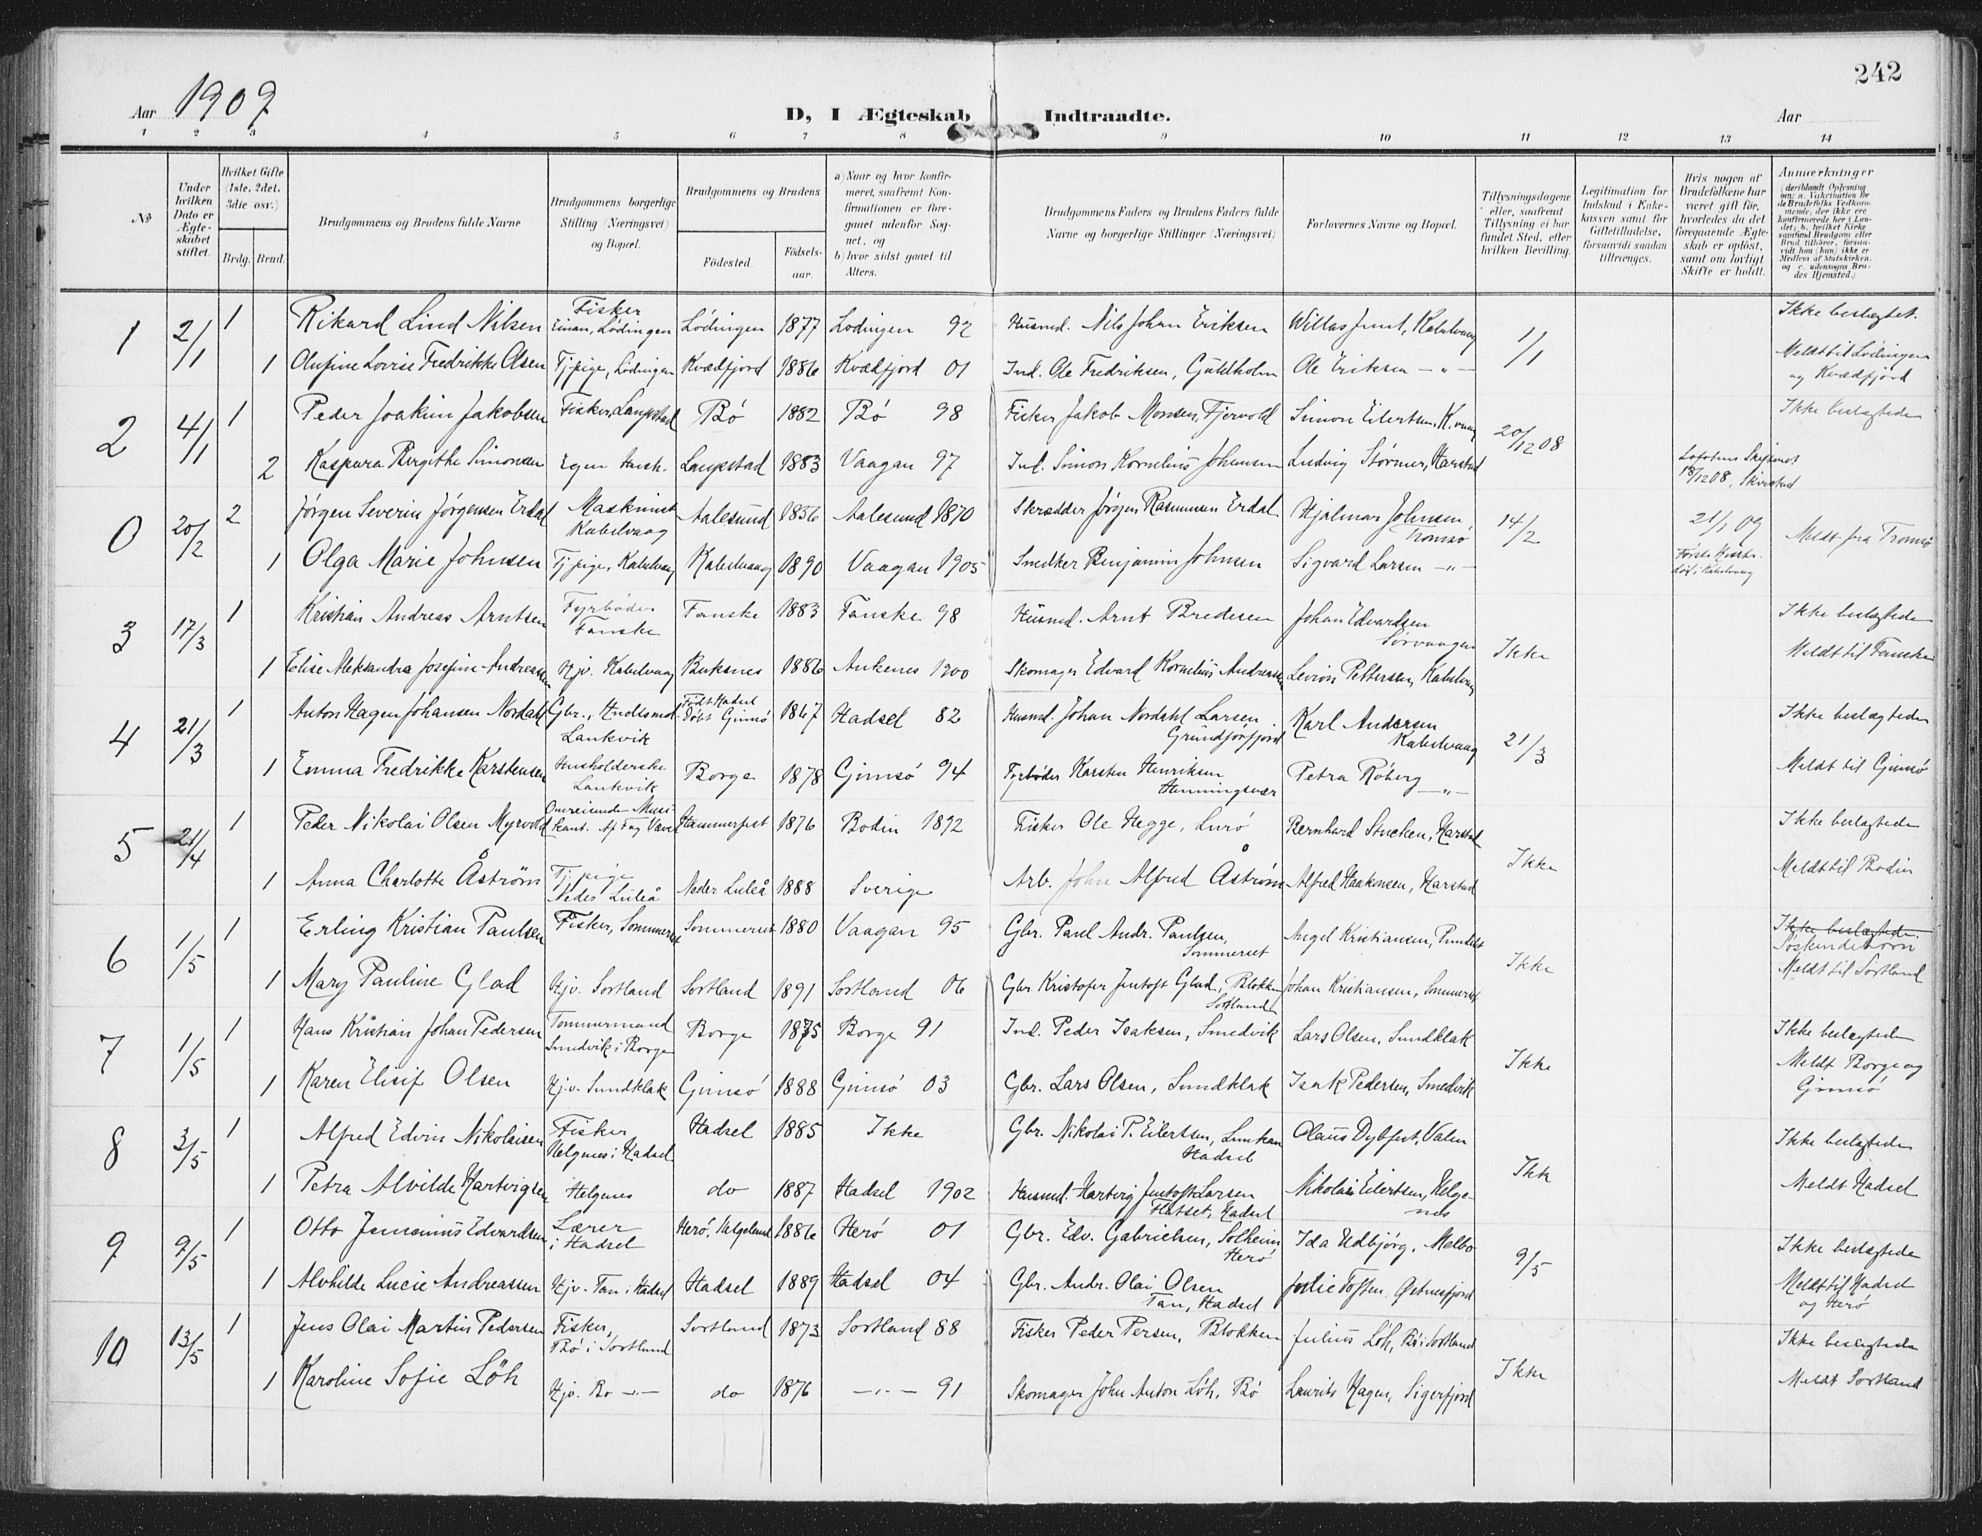 242
Aar 1909
D, I Ægteskab Indtraadte.
Aar
1 2 3 4 5 6 7 8 9 10 11 12 13 14
No
Under hvilken Dato er Ægteskabet stiftet.
Hvilket Gifte (1ste, 2det, 3die osv.)
Brdg. Brud.
Brudgommens og Brudens fulde Navne
Brudgommens borgerlige Stilling (Næringsvei) og Bopæl.
Brudgommens og Brudens
Fødested.
Fødselsaar.
a) Naar og hvor konfirmeret, saafremt Konfirmationen er foregaaet udenfor Sognet, og
b) hvor sidst gaaet til Alters.
Brudgommens Faders og Brudens Faders fulde Navne og borgerlige Stillinger (Næringsvei)
Forlovernes Navne og Bopæl.
Tillysningsdagene eller, saafremt Tillysning ei har fundet Sted, efter hvilken Bevilling.
Legitimation for Indskud i Enkekassen samt for Giftetilladelse, forsaavidt saadan tiltrænges.
Hvis nogen af Brudefolkene har været gift før, hvorledes da det foregaaende Ægteskab er opløst, samt om lovligt Skifte er holdt.
Anmærkninger
1 2/1 1 Rikard Lind Nilsen Fisker Lødingen Lødingen 1877 Lødingen 92 Husmd. Nils Johan Eriksen Kabelvaag 1/1 Ikke beslægtet.
1 Olufine Lovise Fredrikke Olsen Tj.pige, Lødingen Kvædfjord 1886 Kvædfjord 01 Ind. Ole Fredriksen, Guldholm Ole Eriksen -"- Meldt til Lødingen og Kvædfjord
2 4/1 1 Peder Joakim Jakobsen Fisker, Laupstad Bø 1882 Bø 98 Fisker Jakob Monsen, Fjervold Simon Eilertsen, K.vaag 20/12 08 Ikke beslægtede
2 Kaspara Bergithe Simonsen Egen Laupstad 1883 Vaagan 97 Ind. Simon Kornelius Johansen Ludvig Størmer, Harstad Lofotens 18/12 08
0 20/2 2 Jørgen Severin Jørgensen Erdal Maskinist Kabelvaag Aalesund 1856 Aalesund 1870 Skrædder Jørgen Rasmussen Erdal Hjalmar Johnsen, Tromsø 14/2 21/1 09 Meldt fra Tromsø
1 Olga Marie Johnsen Tj.pige, Kabelvaag Kabelvaag 1890 Vaagan 1905 Smedker Benjamin Johnsen Sigvard Larsen -"- Kabelvaag
3 17/3 1 Kristian Andreas Arntsen Fyrbøder Fauske Fauske 1883 Fauske 98 Husmd. Arnt Bredesen Johan Edvardsen Sørvaagen Ikke Ikke beslægtede
1 Elise Aleksandra Josefine Andreassen Hjv. Kabelvaag Buksnes 1886 Ankenes 1900 Skomager Edvard Kornelius Andreassen Pettersen, Kabelvaag Meldt til Fauske
4 21/3 1 Anton Hagen Johansen Nordahl Gbr., Laukvik Født Hadsel Døbt Gimsø 1867 Hadsel 82 Husmd. Johan Nordahl Larsen Grundforfjord Karl Andersen Kabelvaag 21/3 Ikke beslægtede
1 Emma Fredrikke Karstensen Husholderske Laukvik Borge 1878 Gimsø 94 Fyrbøder Karsten Henriksen Henningsvær Petra Røberg -"- Meldt til Gimsø
5 21/4 1 Peder Nikolai Olsen Myrvold Omreisende Musikant. Af Fag Væver Hammerfest 1876 Bodin 1892 Fisker Ole Hegge, Lurø Bernhard Harstad Ikke Ikke beslægtede
1 Anna Charlotte Åström Tj.pige Neder Luleå Neder Luleå 1888 Sverige Arb. John Alfred Åström Alfred Haakonsen, Harstad Meldt til Bodin
6 1/5 1 Erling Kristian Paulsen Fisker, Sommerset Sommerset 1880 Vaagan 95 Gbr. Paul Andr. Paulsen, Sommerset Angel Kristiansen, Ikke Ikke beslægtede. Søskendebørn
1 Mary Pauline Glad Hjv. Sortland Sortland 1891 Sortland 06 Gbr. Kristofer Jentoft Glad, Blokken Sortland Johan Kristiansen, Sommerset Meldt til Sortland
7 1/5 1 Hans Kristian Johan Pedersen Tømmermand Smedvik i Borge Borge 1875 Borge 91 Ind. Peder Isaksen, Smedvik Lars Olsen, Sundklak Ikke Ikke beslægtede
1 Karen Elisif Olsen Hjv. Sundklak Gimsø 1888 Gimsø 03 Gbr. Lars Olsen, Sundklak Isak Pedersen, Smedvik Meldt Borge og Gimsø
8 3/5 1 Alfred Edvin Nikolaisen Fisker Helgenes i Hadsel Hadsel 1885 Ikke Gbr. Nikolai P. Eilertsen, Hadsel Olaus Dybfest, Valen Ikke Ikke beslægtede
1 Petra Alvilde Hartvigsen Helgenes do 1887 Hadsel 1902 Husmd. Hartvig Jentoft Larsen Hadsel Nikolai Eilertsen, Helgenes Meldt Hadsel
9 9/5 1 Otto Jensenius Edvardsen Lærer i Hadsel Herø, Helgeland 1886 Herø 01 Gbr. Edv. Gabrielsen, Solheim Herø Ida Udbjørg, Melbo 9/5 Ikke beslægtede
1 Alvhilde Lucie Andreassen Hjv. Tan i Hadsel Hadsel 1889 Hadsel 04 Gbr. Andr. Olai Olsen Tan, Hadsel Julie Toften, Østnesfjord Meldt til Hadsel og Herø
10 13/5 1 Jens Olai Martin Pedersen Fisker, Bø i Sortland Sortland 1873 Sortland 88 Fisker Peder Persen, Blokken Julius Løh, Bø i Sortland Ikke Ikke beslægtede
1 Karoline Sofie Løh Hjv. Bø -"- do 1876 -"- 91 Skomager John Anton Løh, Bø Laurits Hagen, Sigerfjord Meldt Sortland